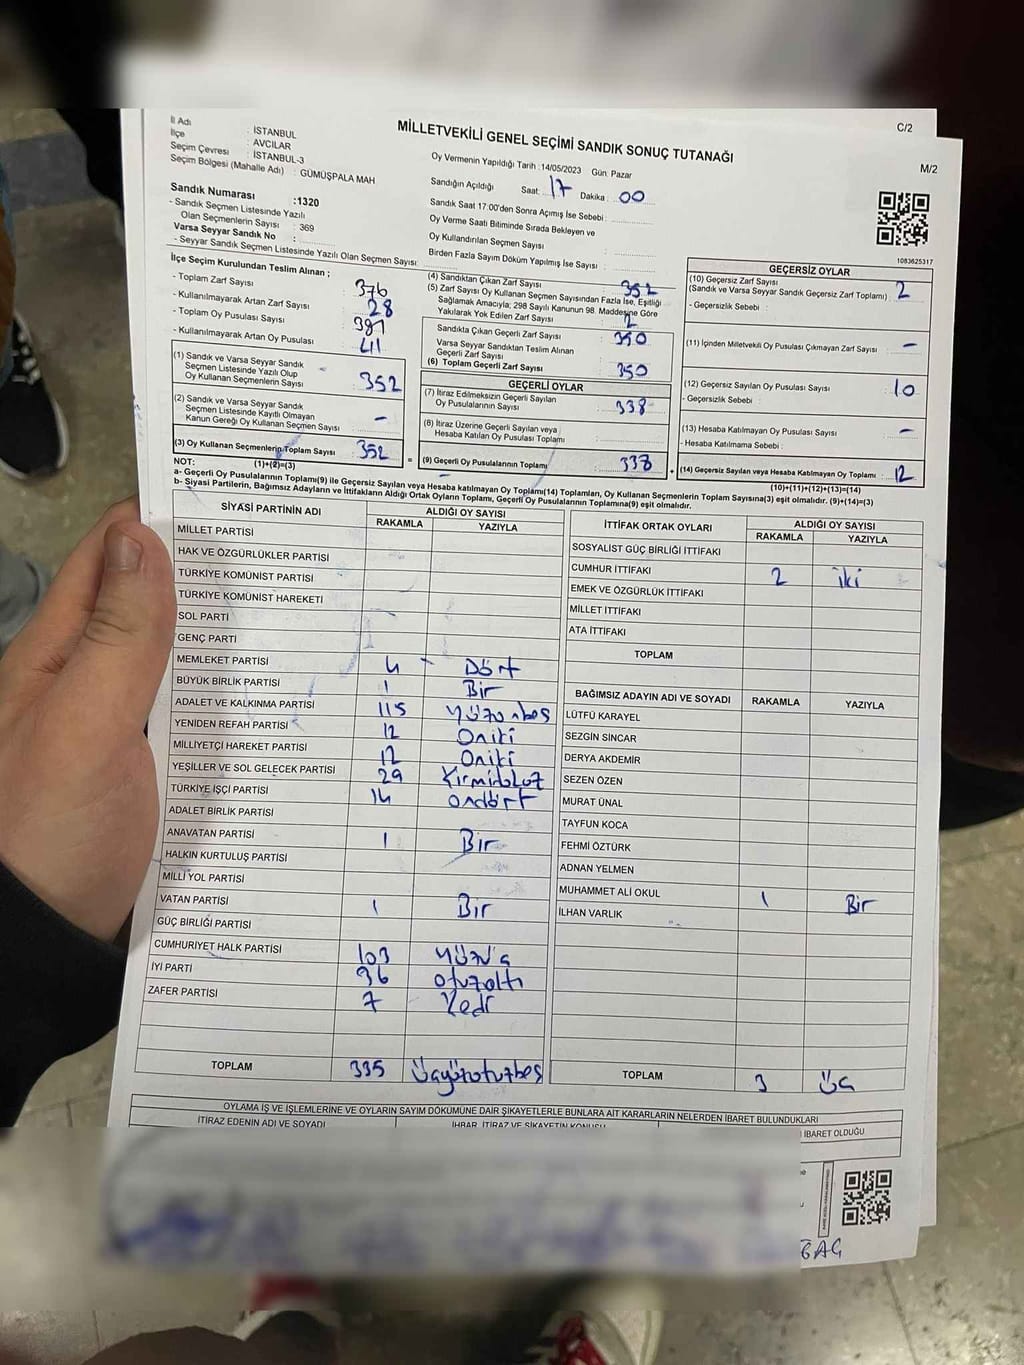 C/2
M/2
MİLLETVEKİLİ GENEL SEÇİMİ SANDIK SONUÇ TUTANAĞI
İl Adı : İSTANBUL
İlçe : AVCILAR
Seçim Çevresi : İSTANBUL-3
Seçim Bölgesi (Mahalle Adı) : GÜMÜŞPALA MAH
Sandık Numarası :1320
- Sandık Seçmen Listesinde Yazılı
Olan Seçmenlerin Sayısı : 369
Varsa Seyyar Sandık No :
- Seyyar Sandık Seçmen Listesinde Yazılı Olan Seçmen Sayısı:
Oy Vermenin Yapıldığı Tarih :14/05/2023 Gün: Pazar
Sandığın Açıldığı Saat: 17 Dakika: 00
Sandık Saat 17:00'den Sonra Açımış İse Sebebi :
Oy Verme Saati Bitiminde Sırada Bekleyen ve
Oy Kullandırılan Seçmen Sayısı :
Birden Fazla Sayım Döküm Yapılmış İse Sayısı :
1083625317
İlçe Seçim Kurulundan Teslim Alınan ;
- Toplam Zarf Sayısı : 376
- Kullanılmayarak Artan Zarf Sayısı : 28
- Toplam Oy Pusulası Sayısı :
- Kullanılmayarak Artan Oy Pusulası : 41
(1) Sandık ve Varsa Seyyar Sandık
Seçmen Listesinde Yazılı Olup
Oy Kullanan Seçmenlerin Sayısı : 352
(2) Sandık ve Varsa Seyyar Sandık
Seçmen Listesinde Kayıtlı Olmayan
Kanun Gereği Oy Kullanan Seçmen Sayısı : -
(3) Oy Kullanan Seçmenlerin Toplam Sayısı : 352
(1)+(2)=(3)
(4) Sandıktan Çıkan Zarf Sayısı : 352
(5) Zarf Sayısı Oy Kullanan Seçmen Sayısından Fazla İse, Eşitliği
Sağlamak Amacıyla; 298 Sayılı Kanunun 98. Maddesine Göre
Yakılarak Yok Edilen Zarf Sayısı : 2
Sandıkta Çıkan Geçerli Zarf Sayısı : 350
Varsa Seyyar Sandıktan Teslim Alınan
Geçerli Zarf Sayısı :
(6) Toplam Geçerli Zarf Sayısı : 350
GEÇERLİ OYLAR
(7) İtiraz Edilmeksizin Geçerli Sayılan
Oy Pusulalarının Sayısı : 338
(8) İtiraz Üzerine Geçerli Sayılan veya
Hesaba Katılan Oy Pusulası Toplamı :
= (9) Geçerli Oy Pusulalarının Toplamı : 338 +
GEÇERSİZ OYLAR
(10) Geçersiz Zarf Sayısı
(Sandık ve Varsa Seyyar Sandık Geçersiz Zarf Toplamı) : 2
- Geçersizlik Sebebi :
(11) İçinden Milletvekili Oy Pusulası Çıkmayan Zarf Sayısı : -
(12) Geçersiz Sayılan Oy Pusulası Sayısı : 10
- Geçersizlik Sebebi :
(13) Hesaba Katılmayan Oy Pusulası Sayısı : -
- Hesaba Katılmama Sebebi :
(14) Geçersiz Sayılan veya Hesaba Katılmayan Oy Toplamı : 12
(10)+(11)+(12)+(13)=(14)
NOT:
a- Geçerli Oy Pusulaları Toplamı(9) ile Geçersiz Sayılan veya Hesaba katılmayan Oy Toplamı(14) Toplamları, Oy Kullanan Seçmenlerin Toplam Sayısına(3) eşit olmalıdır. (9)+(14)=(3)
b- Siyasi Partilerin, Bağımsız Adayların ve İttifakların Aldığı Ortak Oyların Toplamı, Geçerli Oy Pusulalarının Toplamına(9) eşit olmalıdır.
SİYASİ PARTİNİN ADI ALDIĞI OY SAYISI
RAKAMLA YAZIYLA
MİLLET PARTİSİ
HAK VE ÖZGÜRLÜKLER PARTİSİ
TÜRKİYE KOMÜNİST PARTİSİ
TÜRKİYE KOMÜNİST HAREKETİ
SOL PARTİ
GENÇ PARTİ
MEMLEKET PARTİSİ 4 Dört
BÜYÜK BİRLİK PARTİSİ 1 Bir
ADALET VE KALKINMA PARTİSİ 115 Yüzonbeş
YENİDEN REFAH PARTİSİ 12 Oniki
MİLLİYETÇİ HAREKET PARTİSİ 12 Oniki
YEŞİLLER VE SOL GELECEK PARTİSİ 29
TÜRKİYE İŞÇİ PARTİSİ 14 Ondört
ADALET BİRLİK PARTİSİ
ANAVATAN PARTİSİ 1 Bir
HALKIN KURTULUŞ PARTİSİ
MİLLİ YOL PARTİSİ
VATAN PARTİSİ 1 Bir
GÜÇ BİRLİĞİ PARTİSİ
CUMHURİYET HALK PARTİSİ 103
İYİ PARTİ 36 Otuzaltı
ZAFER PARTİSİ 7 Yedi
TOPLAM 335 Üçyüzotuzbeş
İTTİFAK ORTAK OYLARI ALDIĞI OY SAYISI
RAKAMLA YAZIYLA
SOSYALİST GÜÇ BİRLİĞİ İTTİFAKI
CUMHUR İTTİFAKI 2 iki
EMEK VE ÖZGÜRLÜK İTTİFAKI
MİLLET İTTİFAKI
ATA İTTİFAKI
TOPLAM
BAĞIMSIZ ADAYIN ADI VE SOYADI RAKAMLA YAZIYLA
LÜTFÜ KARAYEL
SEZGİN SİNCAR
DERYA AKDEMİR
SEZEN ÖZEN
MURAT ÜNAL
TAYFUN KOCA
FEHMİ ÖZTÜRK
ADNAN YELMEN
MUHAMMET ALİ OKUL 1 Bir
İLHAN VARLIK
TOPLAM 3 Üç
OYLAMA İŞ VE İŞLEMLERİNE VE OYLARIN SAYIM DÖKÜMÜNE DAİR ŞİKAYETLERLE BUNLARA AİT KARARLARIN NELERDEN İBARET BULUNDUKLARI
İTİRAZ EDENİN ADI VE SOYADI İHBAR, İTİRAZ VE ŞİKAYETİN KONUSU İBARET OLDUĞU